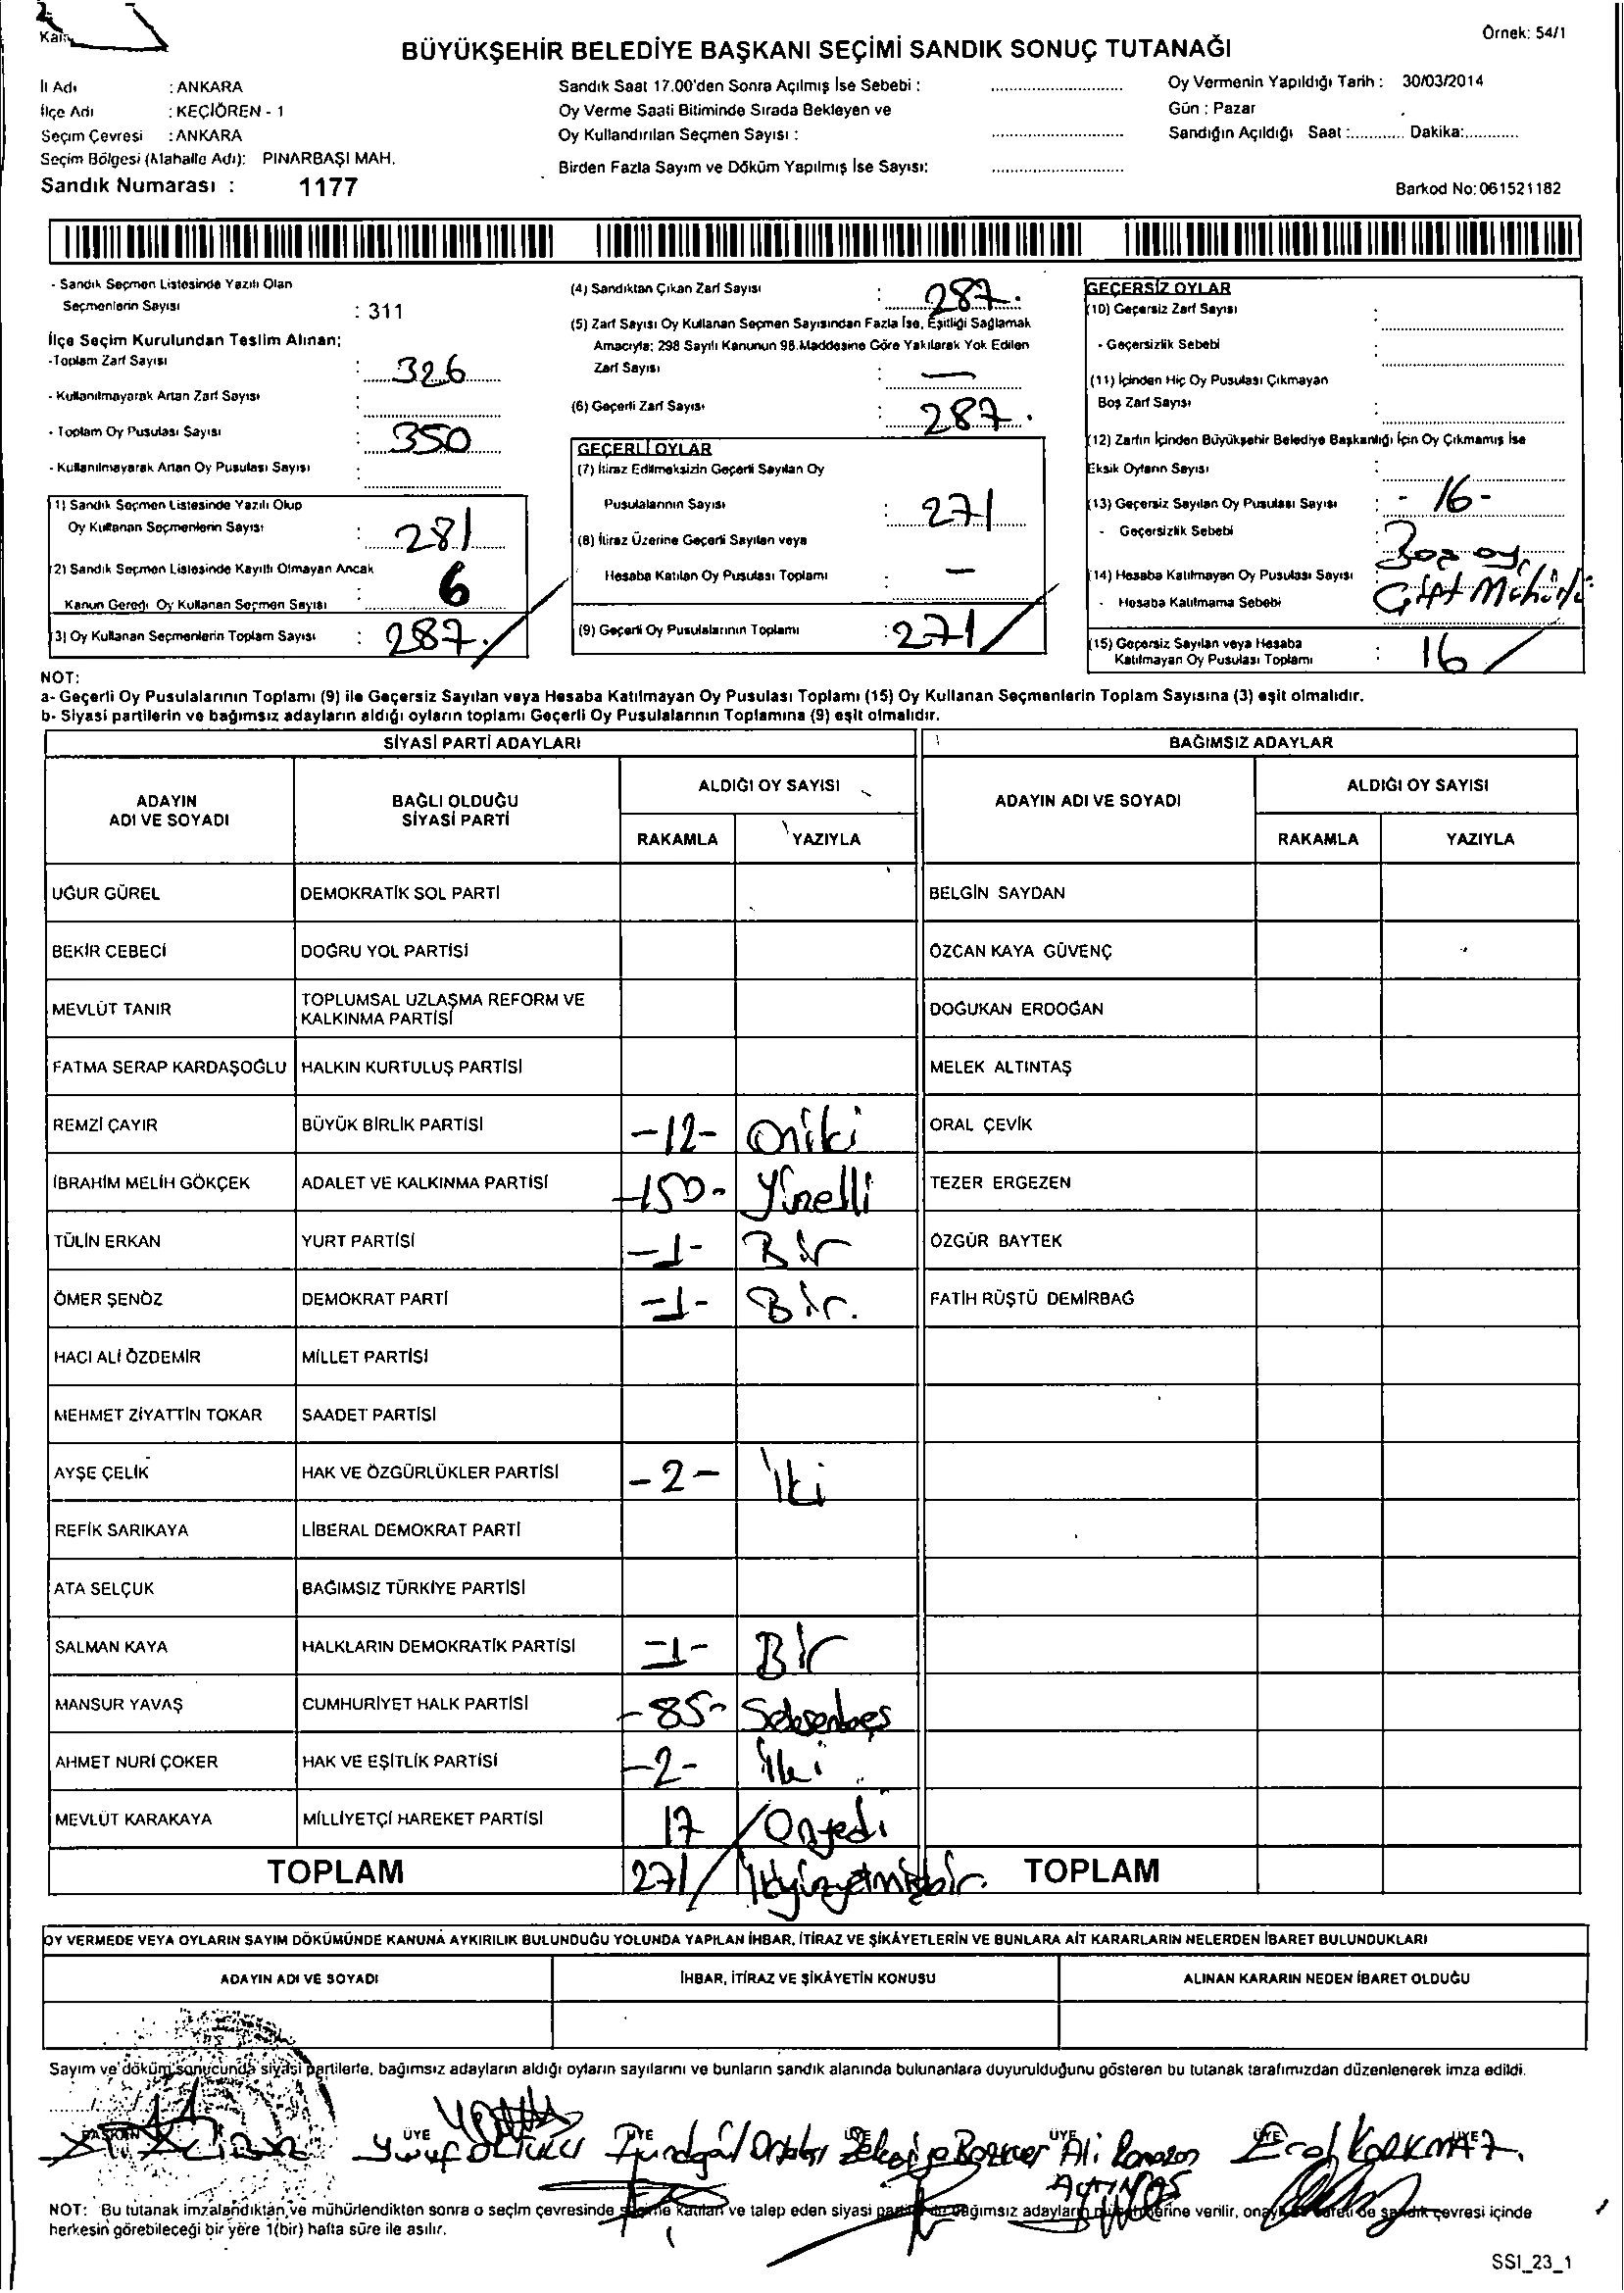 Örnek: 54/1
BÜYÜKŞEHİR BELEDİYE BAŞKANI SEÇİMİ SANDIK SONUÇ TUTANAĞI
İl Adı : ANKARA
İlçe Adı : KEÇİÖREN - 1
Seçim Çevresi : ANKARA
Seçim Bölgesi (Mahalle Adı): PINARBAŞI MAH.
Sandık Numarası : 1177
Sandık Saat 17.00'den Sonra Açılmış İse Sebebi :
Oy Verme Saati Bitiminde Sırada Bekleyen ve
Oy Kullandırılan Seçmen Sayısı :
Birden Fazla Sayım ve Döküm Yapılmış İse Sayısı:
Oy Vermenin Yapıldığı Tarih : 30/03/2014
Gün : Pazar
Sandığın Açıldığı Saat :............ Dakika:............
Barkod No: 061521182
- Sandık Seçmen Listesinde Yazılı Olan
Seçmenlerin Sayısı : 311
İlçe Seçim Kurulundan Teslim Alınan;
-Toplam Zarf Sayısı : 326
- Kullanılmayarak Artan Zarf Sayısı :
- Toplam Oy Pusulası Sayısı : 350
- Kullanılmayarak Artan Oy Pusulası Sayısı :
(1) Sandık Seçmen Listesinde Yazılı Olup
Oy Kullanan Seçmenlerin Sayısı : 281
(2) Sandık Seçmen Listesinde Kayıtlı Olmayan Ancak
Kanun Gereği Oy Kullanan Seçmen Sayısı : 6
(3) Oy Kullanan Seçmenlerin Toplam Sayısı : 287
(4) Sandıktan Çıkan Zarf Sayısı : 287.
(5) Zarf Sayısı Oy Kullanan Seçmen Sayısından Fazla İse, Eşitliği Sağlamak
Amacıyla; 298 Sayılı Kanunun 98.Maddesine Göre Yakılarak Yok Edilen
Zarf Sayısı : —
(6) Geçerli Zarf Sayısı : 287.
GEÇERLİ OYLAR
(7) İtiraz Edilmeksizin Geçerli Sayılan Oy
Pusulalarının Sayısı : 271
(8) İtiraz Üzerine Geçerli Sayılan veya
Hesaba Katılan Oy Pusulası Toplamı : —
(9) Geçerli Oy Pusulalarının Toplamı : 271
GEÇERSİZ OYLAR
(10) Geçersiz Zarf Sayısı :
- Geçersizlik Sebebi :
(11) İçinden Hiç Oy Pusulası Çıkmayan
Boş Zarf Sayısı :
(12) Zarfın İçinden Büyükşehir Belediye Başkanlığı İçin Oy Çıkmamış İse
Eksik Oyların Sayısı :
(13) Geçersiz Sayılan Oy Pusulası Sayısı : - 16 -
- Geçersizlik Sebebi : Boş oy,
(14) Hesaba Katılmayan Oy Pusulası Sayısı :
- Hesaba Katılmama Sebebi : Çift Mühürlü
(15) Geçersiz Sayılan veya Hesaba
Katılmayan Oy Pusulası Toplamı : 16
NOT:
a- Geçerli Oy Pusulalarının Toplamı (9) ile Geçersiz Sayılan veya Hesaba Katılmayan Oy Pusulası Toplamı (15) Oy Kullanan Seçmenlerin Toplam Sayısına (3) eşit olmalıdır.
b- Siyasi partilerin ve bağımsız adayların aldığı oyların toplamı Geçerli Oy Pusulalarının Toplamına (9) eşit olmalıdır.
SİYASİ PARTİ ADAYLARI BAĞIMSIZ ADAYLAR
ADAYIN ADI VE SOYADI BAĞLI OLDUĞU SİYASİ PARTİ ALDIĞI OY SAYISI ADAYIN ADI VE SOYADI ALDIĞI OY SAYISI
RAKAMLA YAZIYLA RAKAMLA YAZIYLA
UĞUR GÜREL DEMOKRATİK SOL PARTİ BELGİN SAYDAN
BEKİR CEBECİ DOĞRU YOL PARTİSİ ÖZCAN KAYA GÜVENÇ
MEVLÜT TANIR TOPLUMSAL UZLAŞMA REFORM VE KALKINMA PARTİSİ DOĞUKAN ERDOĞAN
FATMA SERAP KARDAŞOĞLU HALKIN KURTULUŞ PARTİSİ MELEK ALTINTAŞ
REMZİ ÇAYIR BÜYÜK BİRLİK PARTİSİ -12- Oniki ORAL ÇEVİK
İBRAHİM MELİH GÖKÇEK ADALET VE KALKINMA PARTİSİ -150- Yüzelli TEZER ERGEZEN
TÜLİN ERKAN YURT PARTİSİ -1- Bir ÖZGÜR BAYTEK
ÖMER ŞENÖZ DEMOKRAT PARTİ -1- Bir. FATİH RÜŞTÜ DEMİRBAĞ
HACI ALİ ÖZDEMİR MİLLET PARTİSİ
MEHMET ZİYATTİN TOKAR SAADET PARTİSİ
AYŞE ÇELİK HAK VE ÖZGÜRLÜKLER PARTİSİ -2- İki
REFİK SARIKAYA LİBERAL DEMOKRAT PARTİ
ATA SELÇUK BAĞIMSIZ TÜRKİYE PARTİSİ
SALMAN KAYA HALKLARIN DEMOKRATİK PARTİSİ -1- Bir
MANSUR YAVAŞ CUMHURİYET HALK PARTİSİ -85- Seksenbeş
AHMET NURİ ÇOKER HAK VE EŞİTLİK PARTİSİ -2- İki
MEVLÜT KARAKAYA MİLLİYETÇİ HAREKET PARTİSİ 17 Onyedi
TOPLAM 271 İkiyüzyetmişbir. TOPLAM
OY VERMEDE VEYA OYLARIN SAYIM DÖKÜMÜNDE KANUNA AYKIRILIK BULUNDUĞU YOLUNDA YAPILAN İHBAR, İTİRAZ VE ŞİKÂYETLERİN VE BUNLARA AİT KARARLARIN NELERDEN İBARET BULUNDUKLARI
ADAYIN ADI VE SOYADI İHBAR, İTİRAZ VE ŞİKÂYETİN KONUSU ALINAN KARARIN NEDEN İBARET OLDUĞU
Sayım ve döküm sonucunda siyasi partilerle, bağımsız adayların aldığı oyların sayılarını ve bunların sandık alanında bulunanlara duyurulduğunu gösteren bu tutanak tarafımızdan düzenlenerek imza edildi.
BAŞKAN ÜYE ÜYE ÜYE ÜYE ÜYE
Yusuf Ali Ramazan Erol KORKMAZ
NOT: Bu tutanak imzalandıktan ve mühürlendikten sonra o seçim çevresinde seçime katılan ve talep eden siyasi parti bağımsız adayların müşahitlerine verilir, sandık çevresi içinde
herkesin görebileceği bir yere 1(bir) hafta süre ile asılır.
SSI_23_1